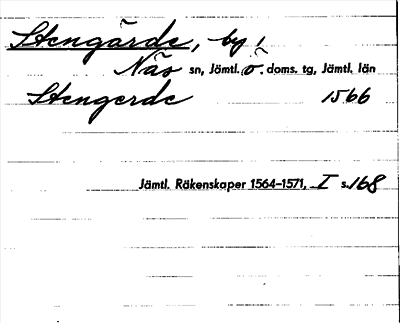 Stengärde, by i
Näs sn, Jämtl. ö. doms. tg, Jämtl. län
Stengerde 1566
Jämtl. Räkenskaper 1564-1571, I s. 168